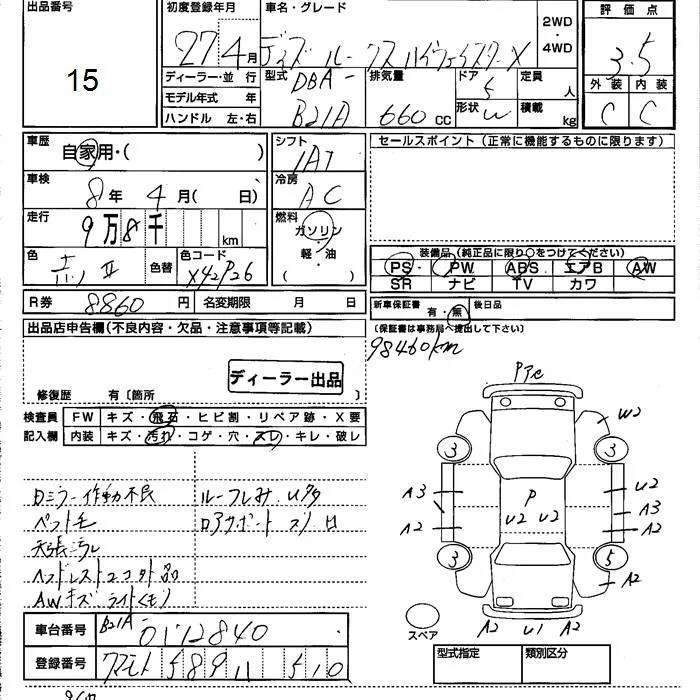 出品番号
15
初度登録年月
27 4月
車名・グレード
デイズ ルークス ハイウェイスター X
2WD
・
4WD
評価点
3.5
外装 内装
C C
ディーラー・並行
モデル年式 年
ハンドル 左・右
型式
DBA-
B21A
排気量
660 cc
ドア
5
形状
定員
人
積載
kg
車歴
自家用・( )
車検
8年 4月( 日)
走行
9万8千 km
色
色替
色コード
X42P26
シフト
IAT
冷房
AC
燃料
ガソリン
・
(軽・油)
セールスポイント(正常に機能するものに限ります)
装備品(純正品に限り○をつけてください)
PS PW ABS エアB AW
SR ナビ TV カワ
R券 8860円 名変期限 月 日
新車保証書 有・無 後日品
(保証書は事務局へ提出して下さい)
98460km
出品店申告欄(不良内容・欠品・注意事項等記載)
ディーラー出品
修復歴 有〔箇所 〕
検査員 FW キズ・飛石・ヒビ割・リペア跡・X要
記入欄 内装 キズ・汚れ・コゲ・穴・スレ・キレ・破レ
ミラー作動不良
ペット毛
ヘッドレスト2コ欠品
AWキズ ライトくもり
ルーフ
車台番号 B21A- 0172840
登録番号 クマモト 589 510
W2
3 3
A3 P U2
A3
A2 U2 U2 A2
3 5
A2
A2 U1 A2
スペア
型式指定 類別区分